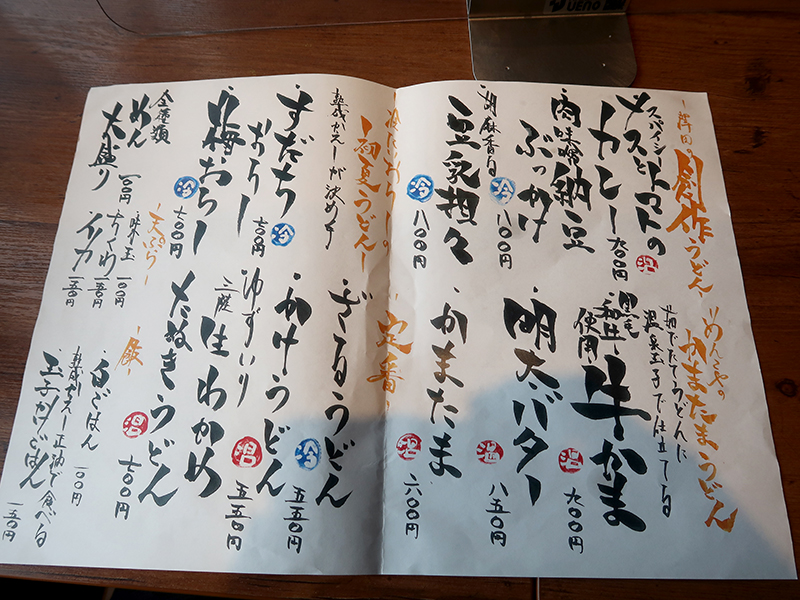 UENO
創作うどん
スパイシートマトの
ナスとトマトの
カレー
九〇〇円
温
肉味噌納豆
ぶっかけ
冷
八〇〇円
胡麻香る
豆乳担々
冷
八〇〇円
めんこやの
かまたまうどん
茹でたてうどんに
温泉玉子で仕立てる
黒毛
和牛
使用
牛かま
温
九〇〇円
明太バター
温
八五〇円
かまたま
温
六〇〇円
初夏うどん
熟成かえしが決め手
すだち
おろし
七〇〇円
冷
梅おろし
冷
七〇〇円
定番
ざるうどん
冷
五五〇円
かけうどん
ゆずいり
温
五五〇円
三陸
生わかめ
たぬきうどん
温
七〇〇円
全種類
めん
大盛り
一〇〇円
天ぷら
味玉
一〇〇円
ちくわ
一五〇円
イカ
一五〇円
飯
白ごはん
一〇〇円
熟成かえし正油で食べる
玉子かけごはん
一五〇円